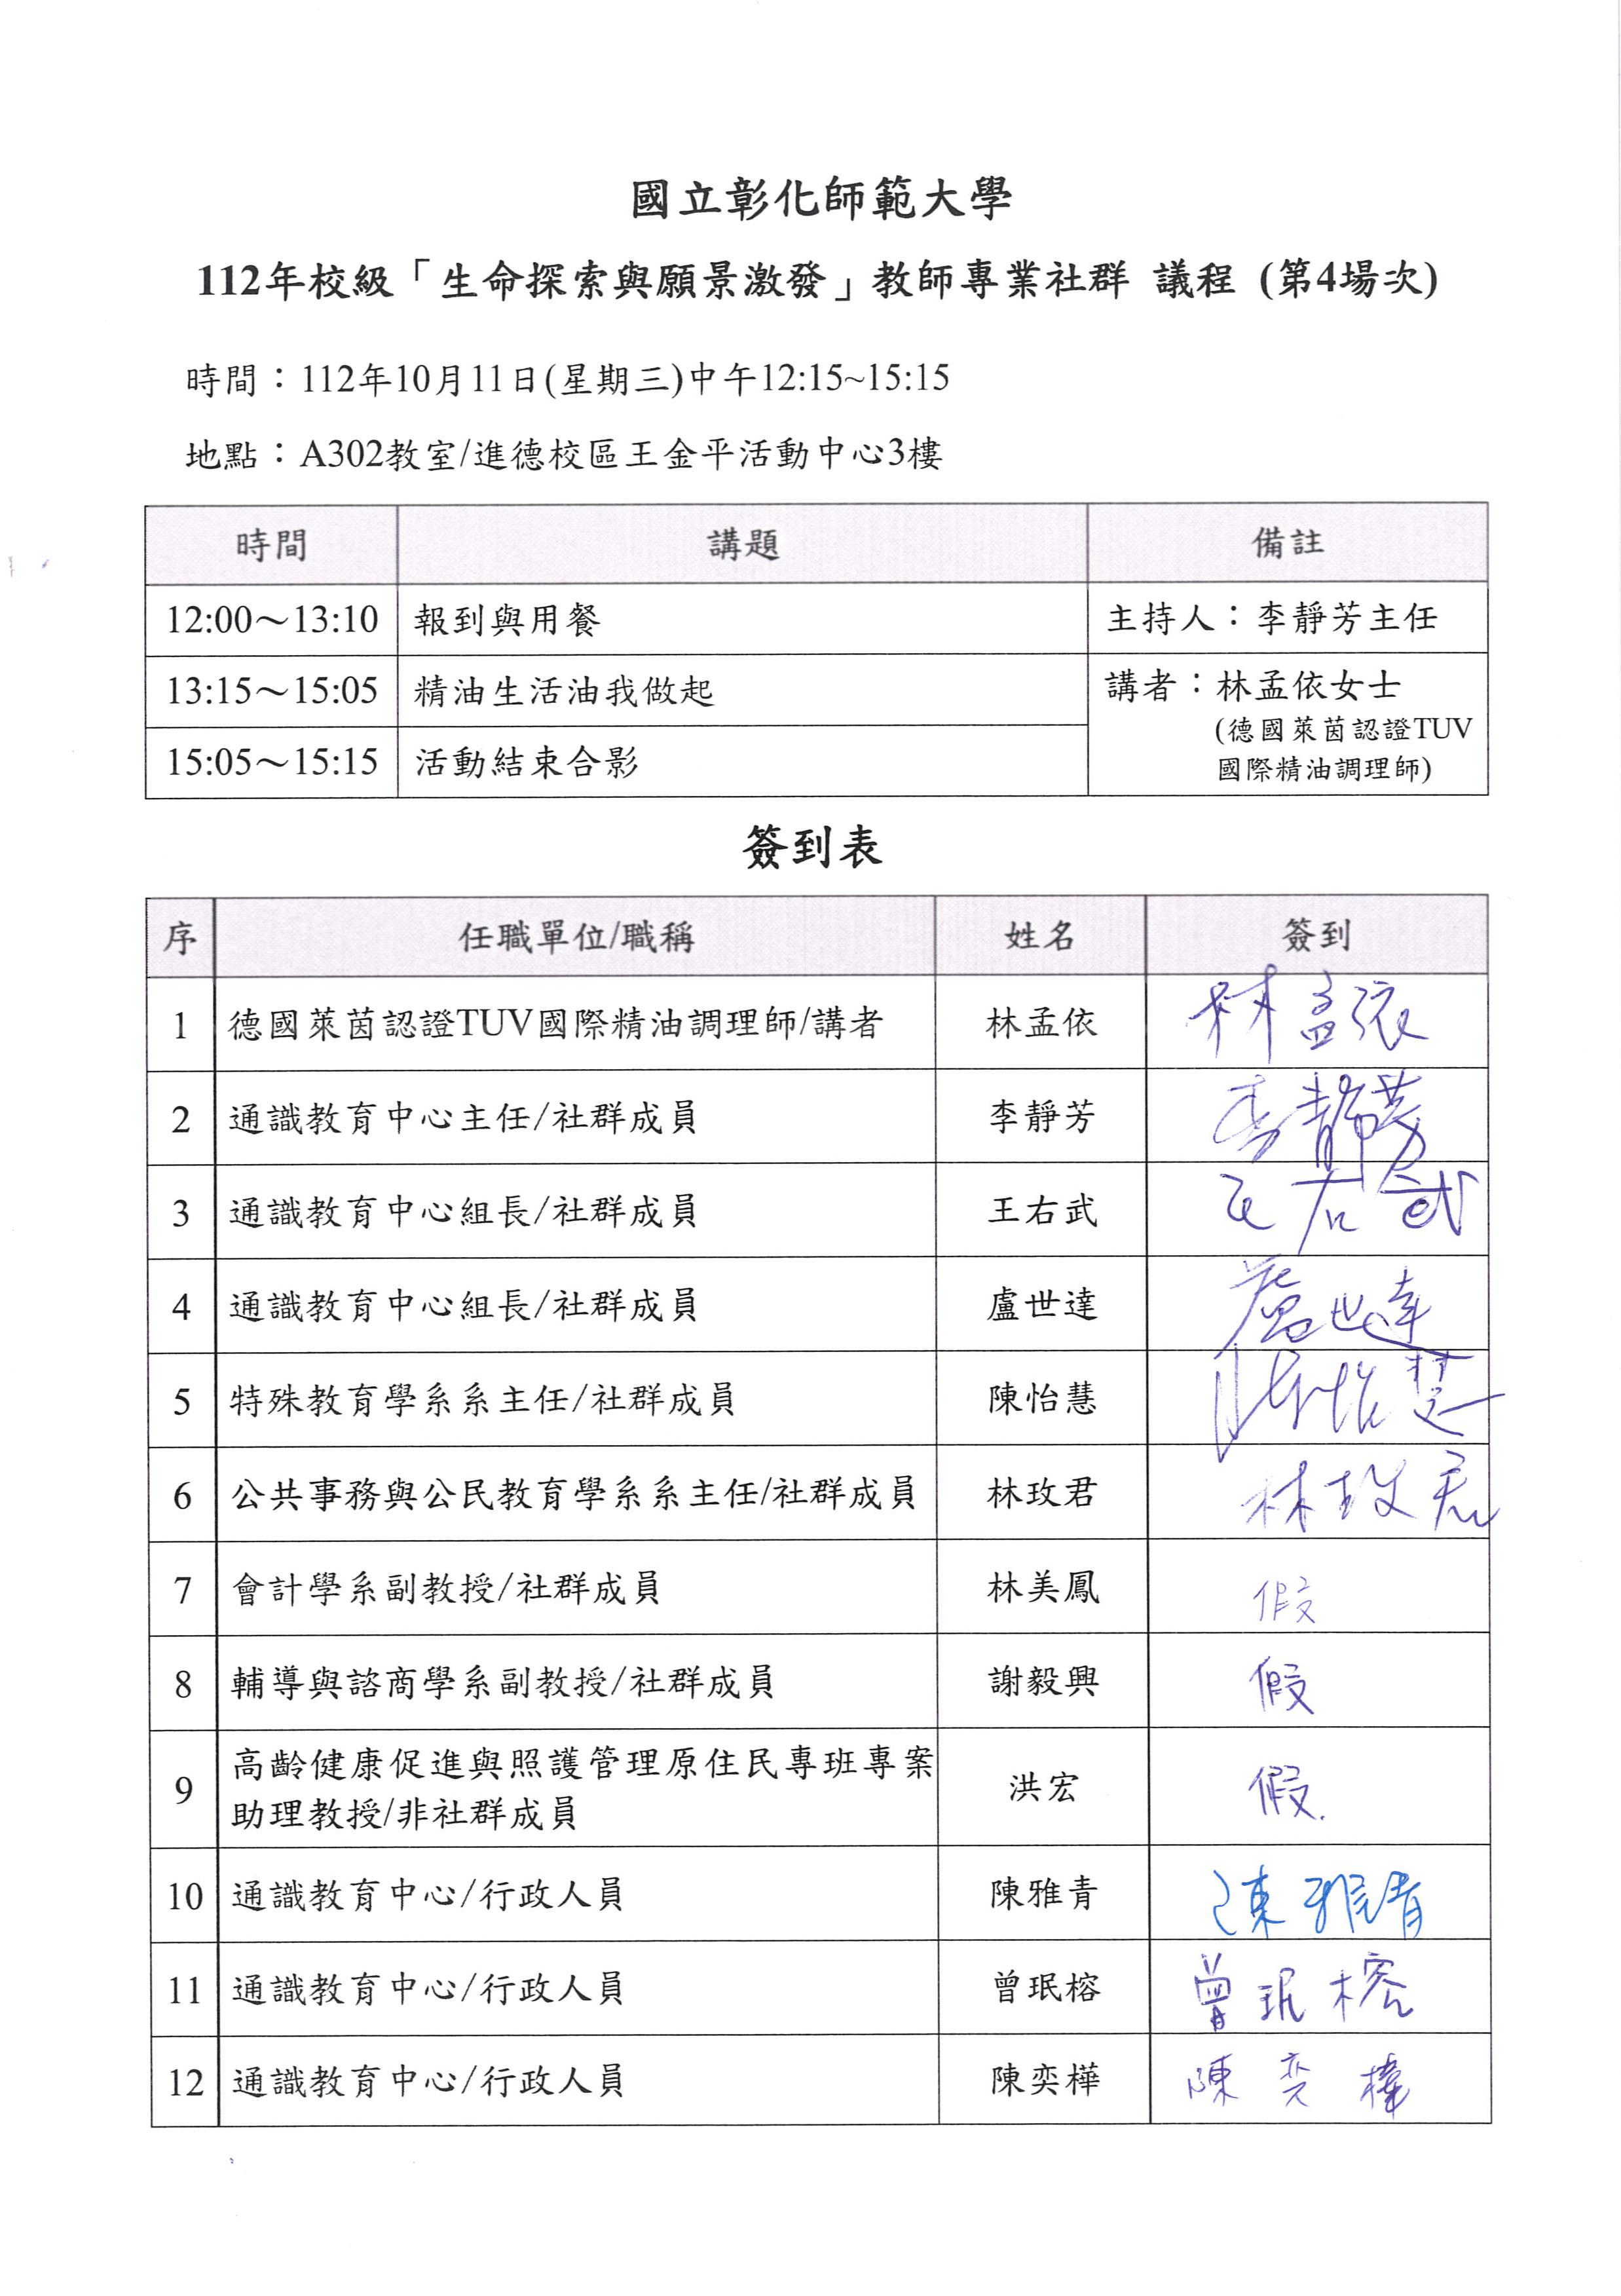 國立彰化師範大學
112年校級「生命探索與願景激發」教師專業社群 議程 (第4場次)
時間：112年10月11日(星期三)中午12:15~15:15
地點：A302教室/進德校區王金平活動中心3樓
時間 講題 備註
12:00～13:10 報到與用餐 主持人：李靜芳主任
13:15～15:05 精油生活油我做起 講者：林孟依女士
(德國萊茵認證TUV
15:05～15:15 活動結束合影 國際精油調理師)
簽到表
序 任職單位/職稱 姓名 簽到
1 德國萊茵認證TUV國際精油調理師/講者 林孟依 林孟依
2 通識教育中心主任/社群成員 李靜芳 李靜芳
3 通識教育中心組長/社群成員 王右武 王右武
4 通識教育中心組長/社群成員 盧世達 盧世達
5 特殊教育學系系主任/社群成員 陳怡慧 陳怡慧
6 公共事務與公民教育學系系主任/社群成員 林玫君 林玫君
7 會計學系副教授/社群成員 林美鳳 假
8 輔導與諮商學系副教授/社群成員 謝毅興 假
9 高齡健康促進與照護管理原住民專班專案
助理教授/非社群成員 洪宏 假.
10 通識教育中心/行政人員 陳雅青 陳雅青
11 通識教育中心/行政人員 曾珉榕 曾珉榕
12 通識教育中心/行政人員 陳奕樺 陳奕樺